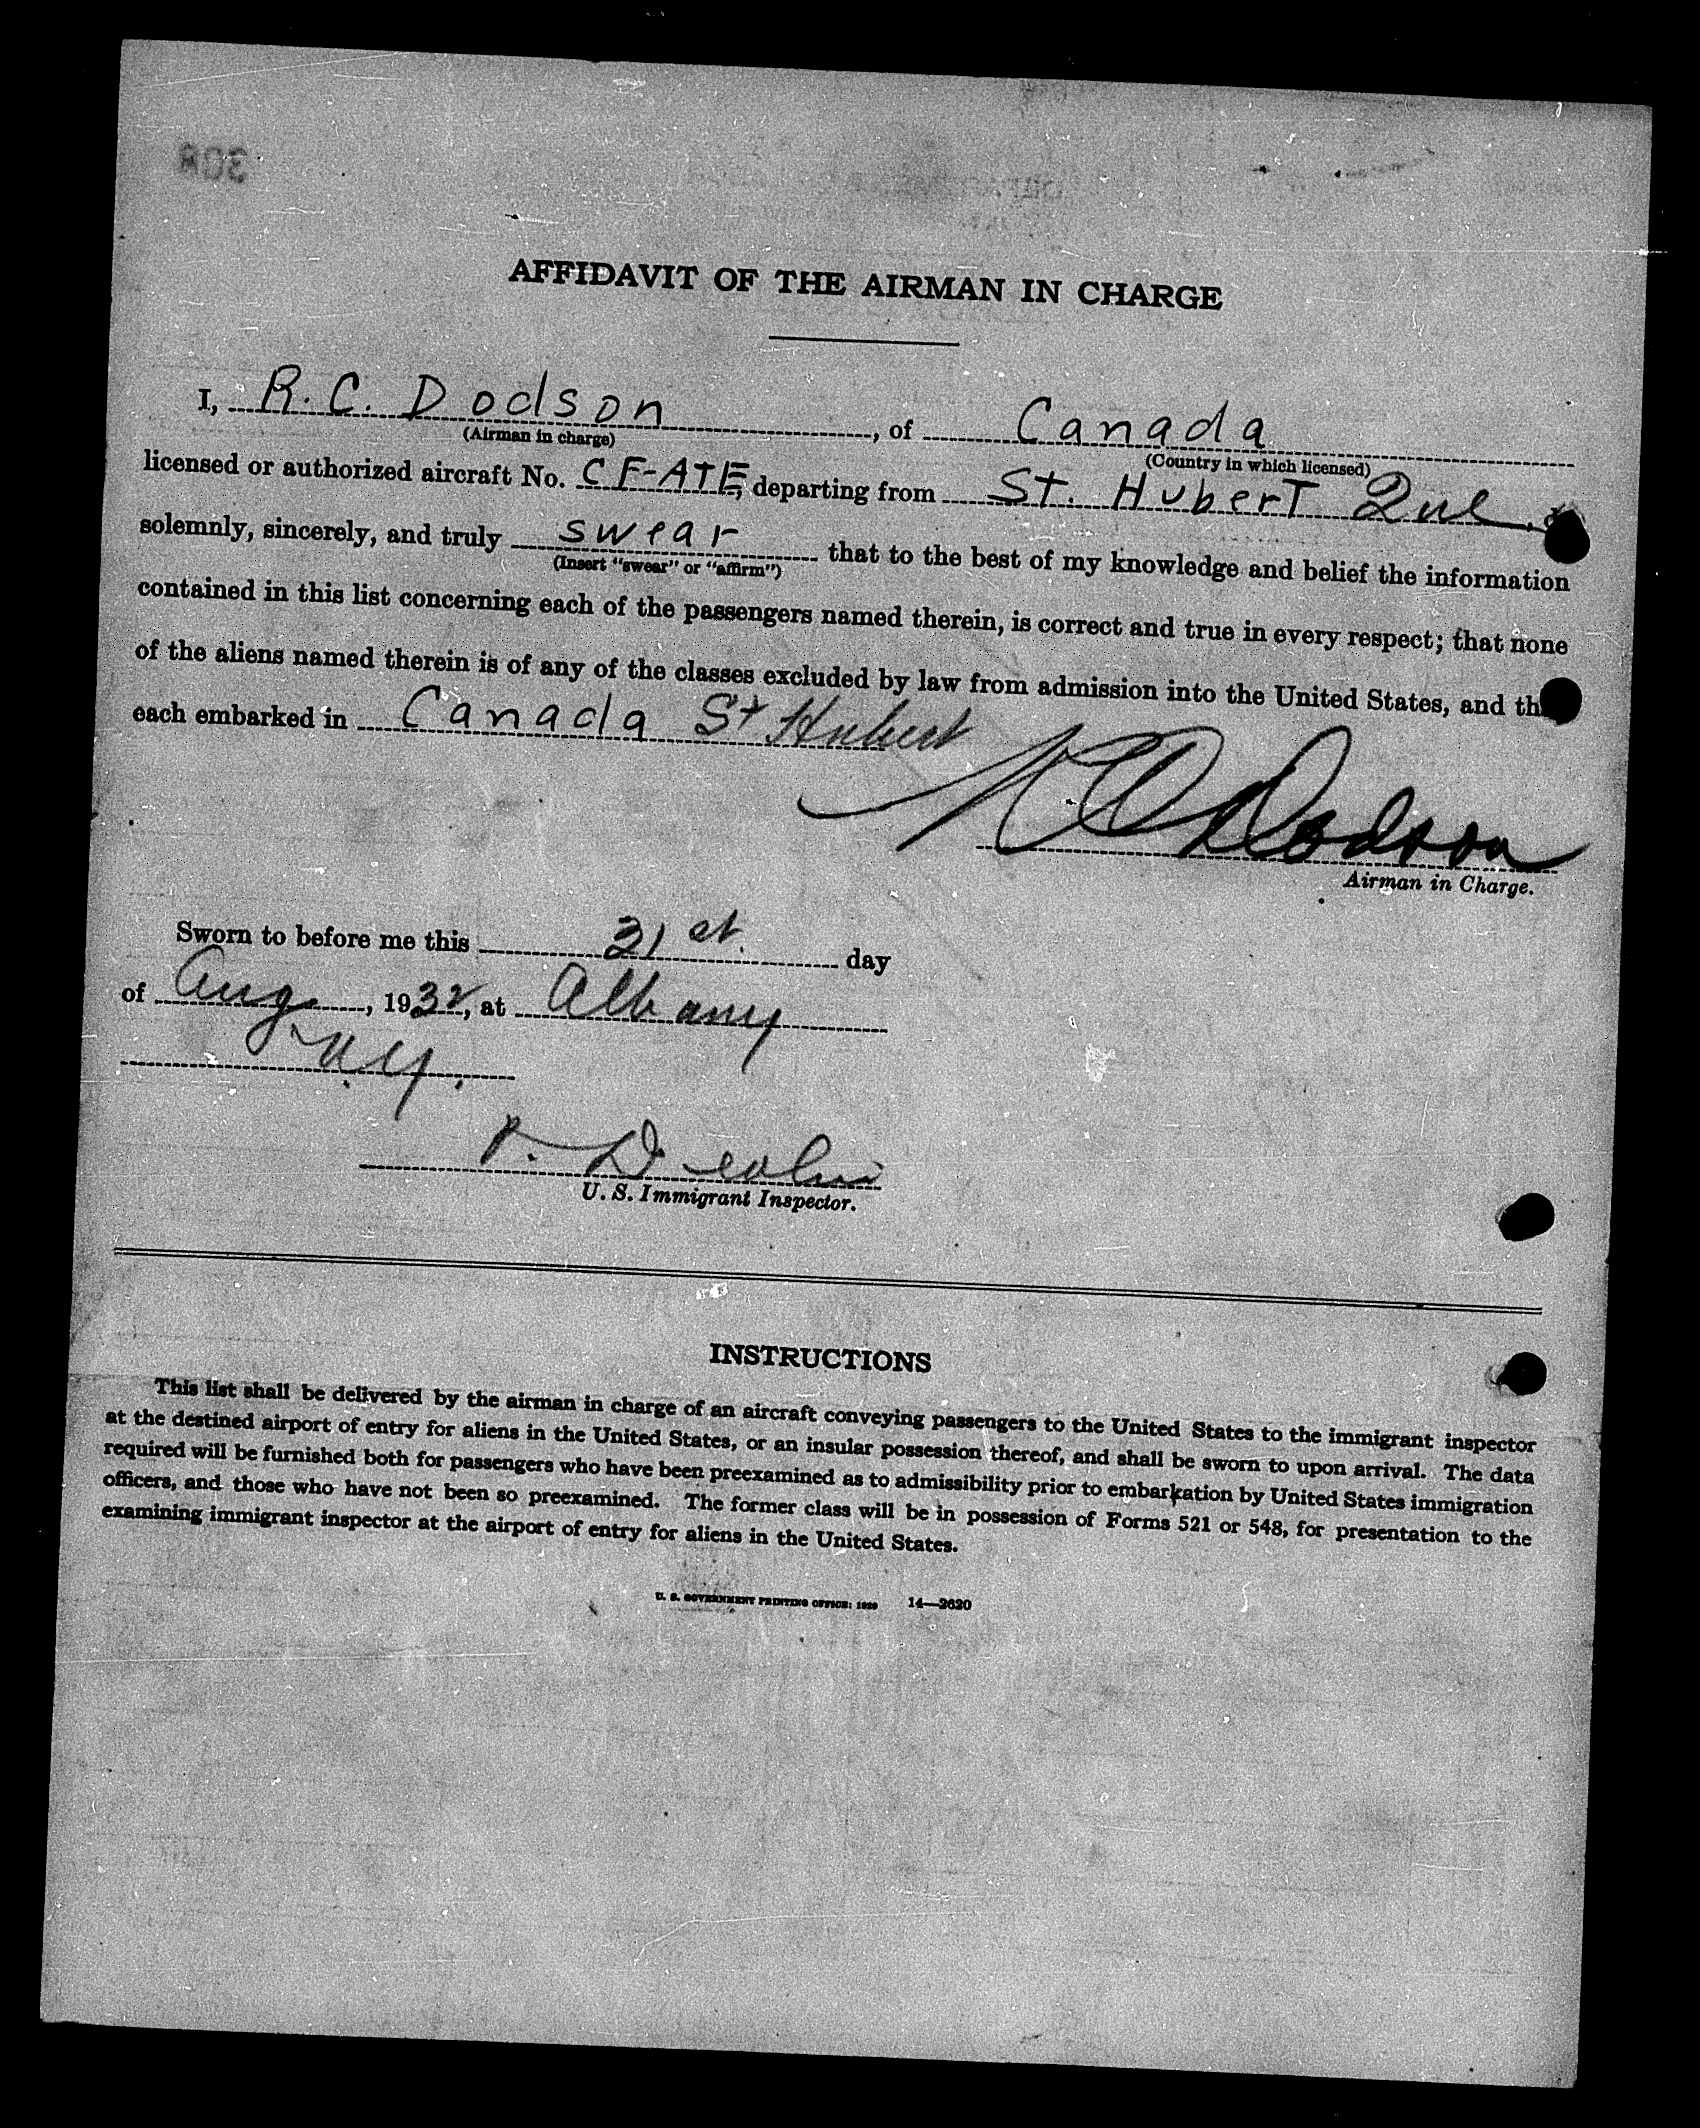 AFFIDAVIT OF THE AIRMAN IN CHARGE
I, R. C. Dodson, of Canada
(Airman in charge) (Country in which licensed)
licensed or authorized aircraft No. CF-ATE, departing from St. Hubert Que
solemnly, sincerely, and truly swear that to the best of my knowledge and belief the information
(Insert "swear" or "affirm")
contained in this list concerning each of the passengers named therein, is correct and true in every respect; that none
of the aliens named therein is of any of the classes excluded by law from admission into the United States, and th
each embarked in Canada St Hubert
R C Dodson
Airman in Charge.
Sworn to before me this 31st. day
of Aug., 1932, at Albany
N.Y.
U. S. Immigrant Inspector.
INSTRUCTIONS
This list shall be delivered by the airman in charge of an aircraft conveying passengers to the United States to the immigrant inspector
at the destined airport of entry for aliens in the United States, or an insular possession thereof, and shall be sworn to upon arrival. The data
required will be furnished both for passengers who have been preexamined as to admissibility prior to embarkation by United States immigration
officers, and those who have not been so preexamined. The former class will be in possession of Forms 521 or 548, for presentation to the
examining immigrant inspector at the airport of entry for aliens in the United States.
U. S. GOVERNMENT PRINTING OFFICE: 1929 14—2620